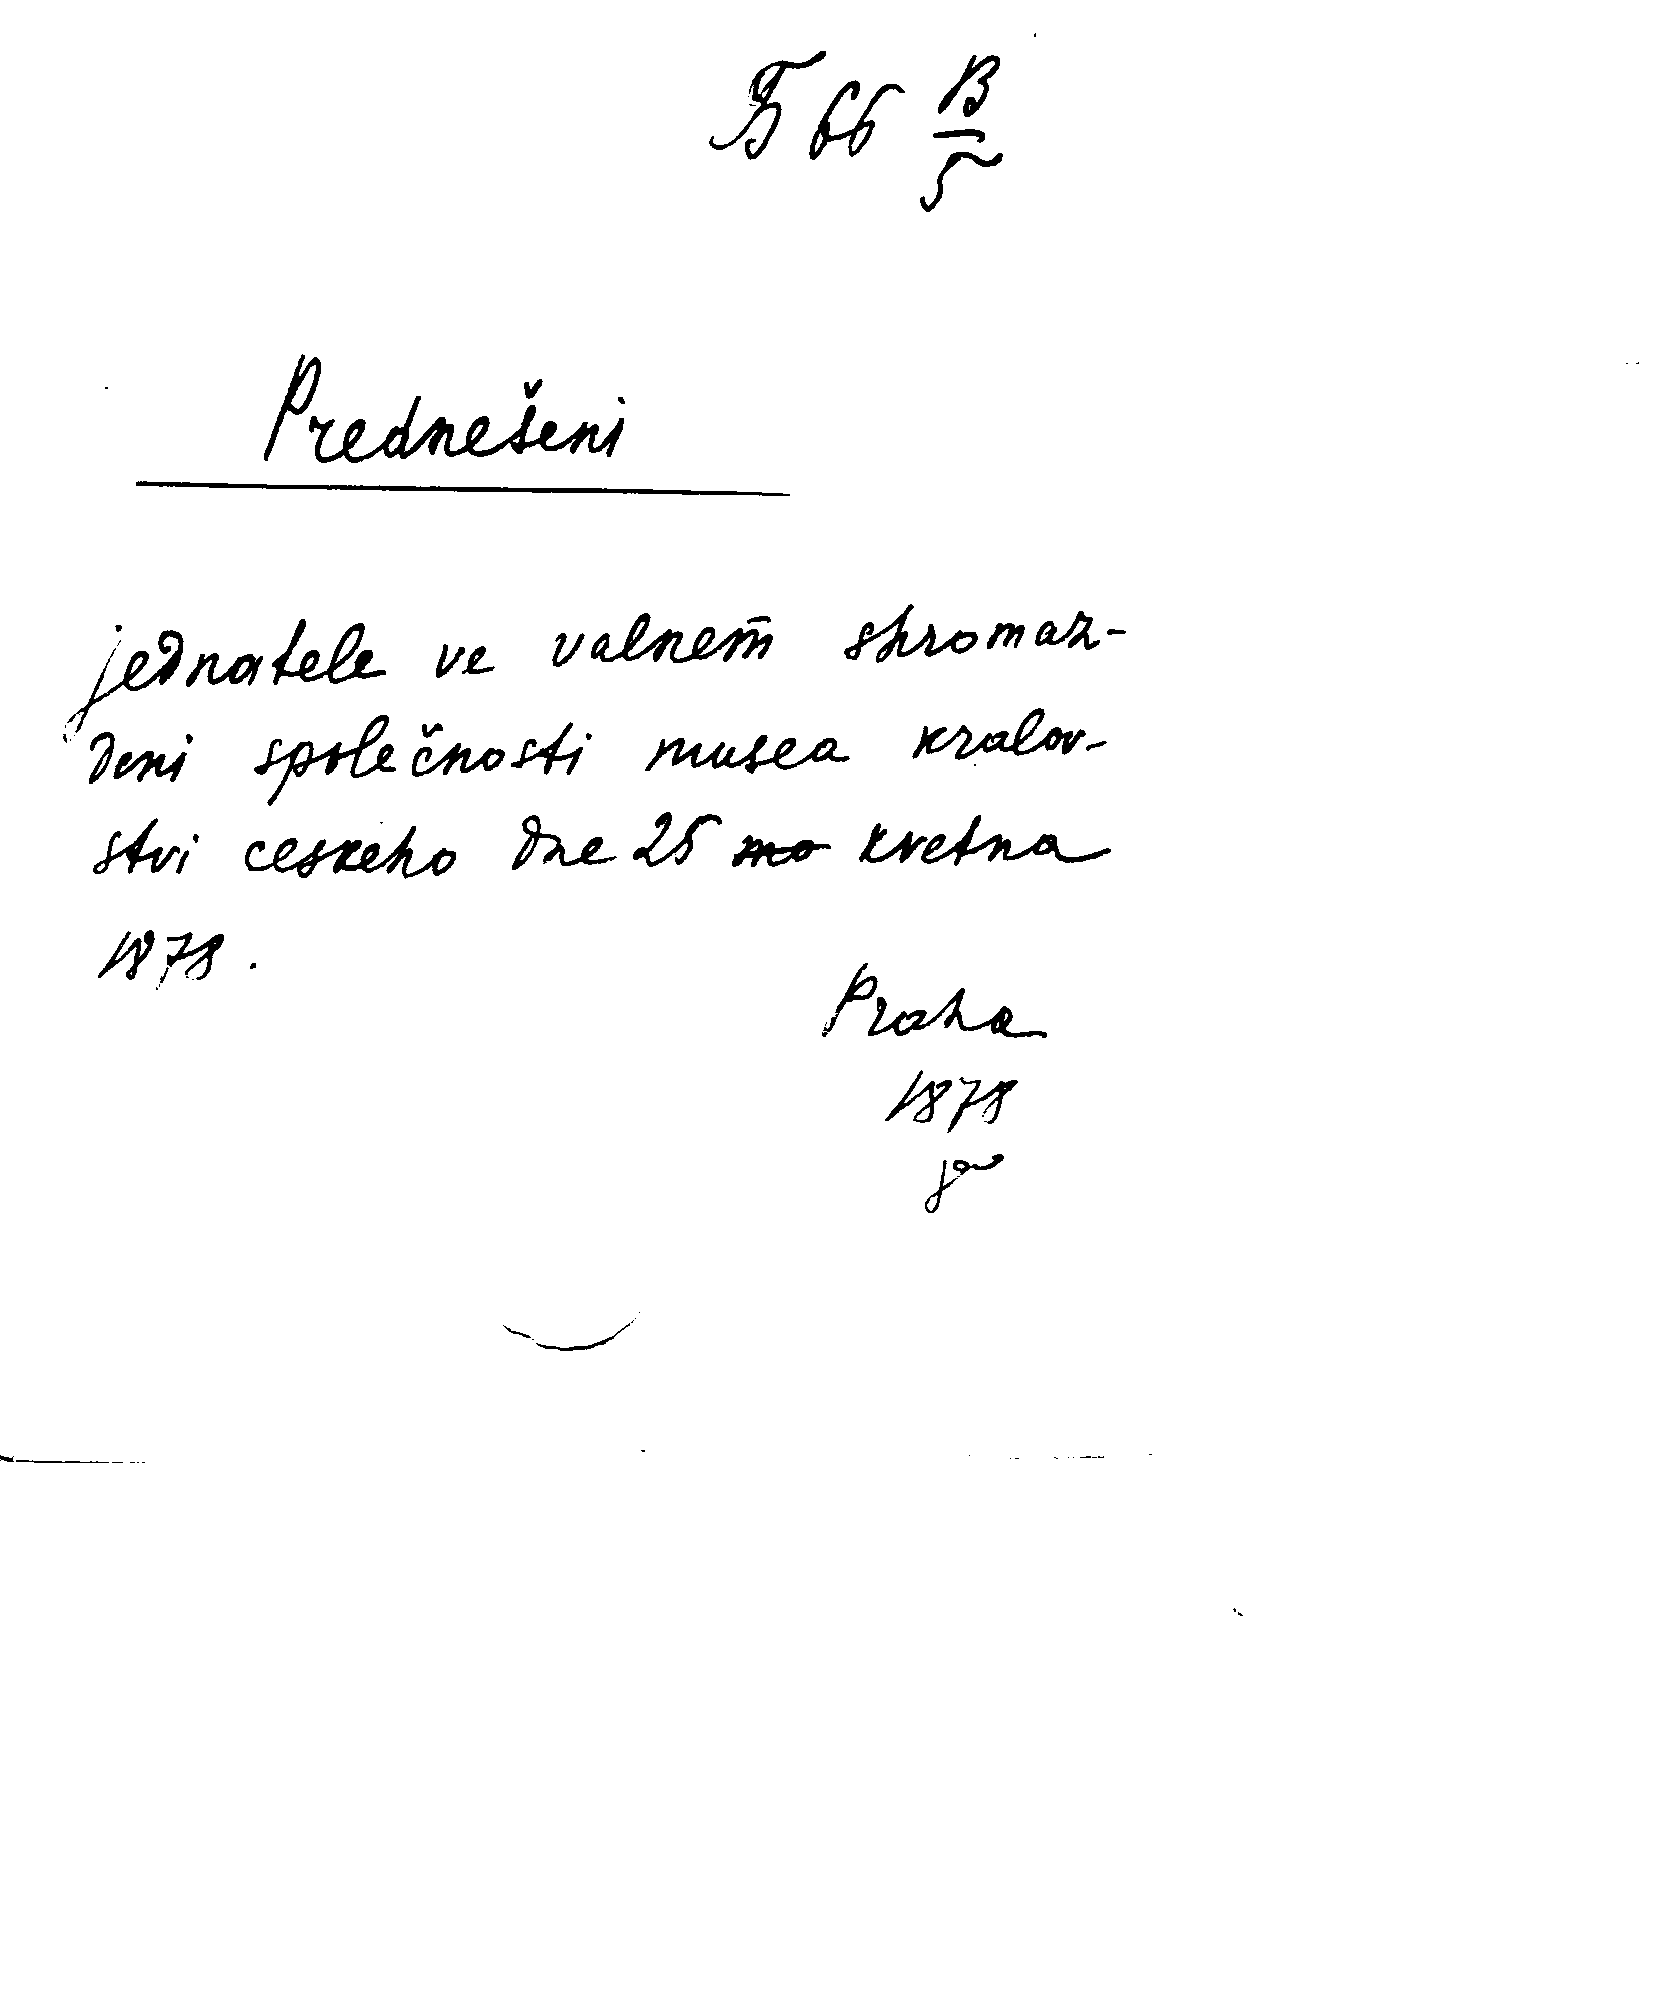 Б 66 В/5
Prednešeni
jednatele ve valnem shromaz-
deni společnosti musea kralov-
stvi ceskeho dne 25 kvetna
1878.
Praha
1878